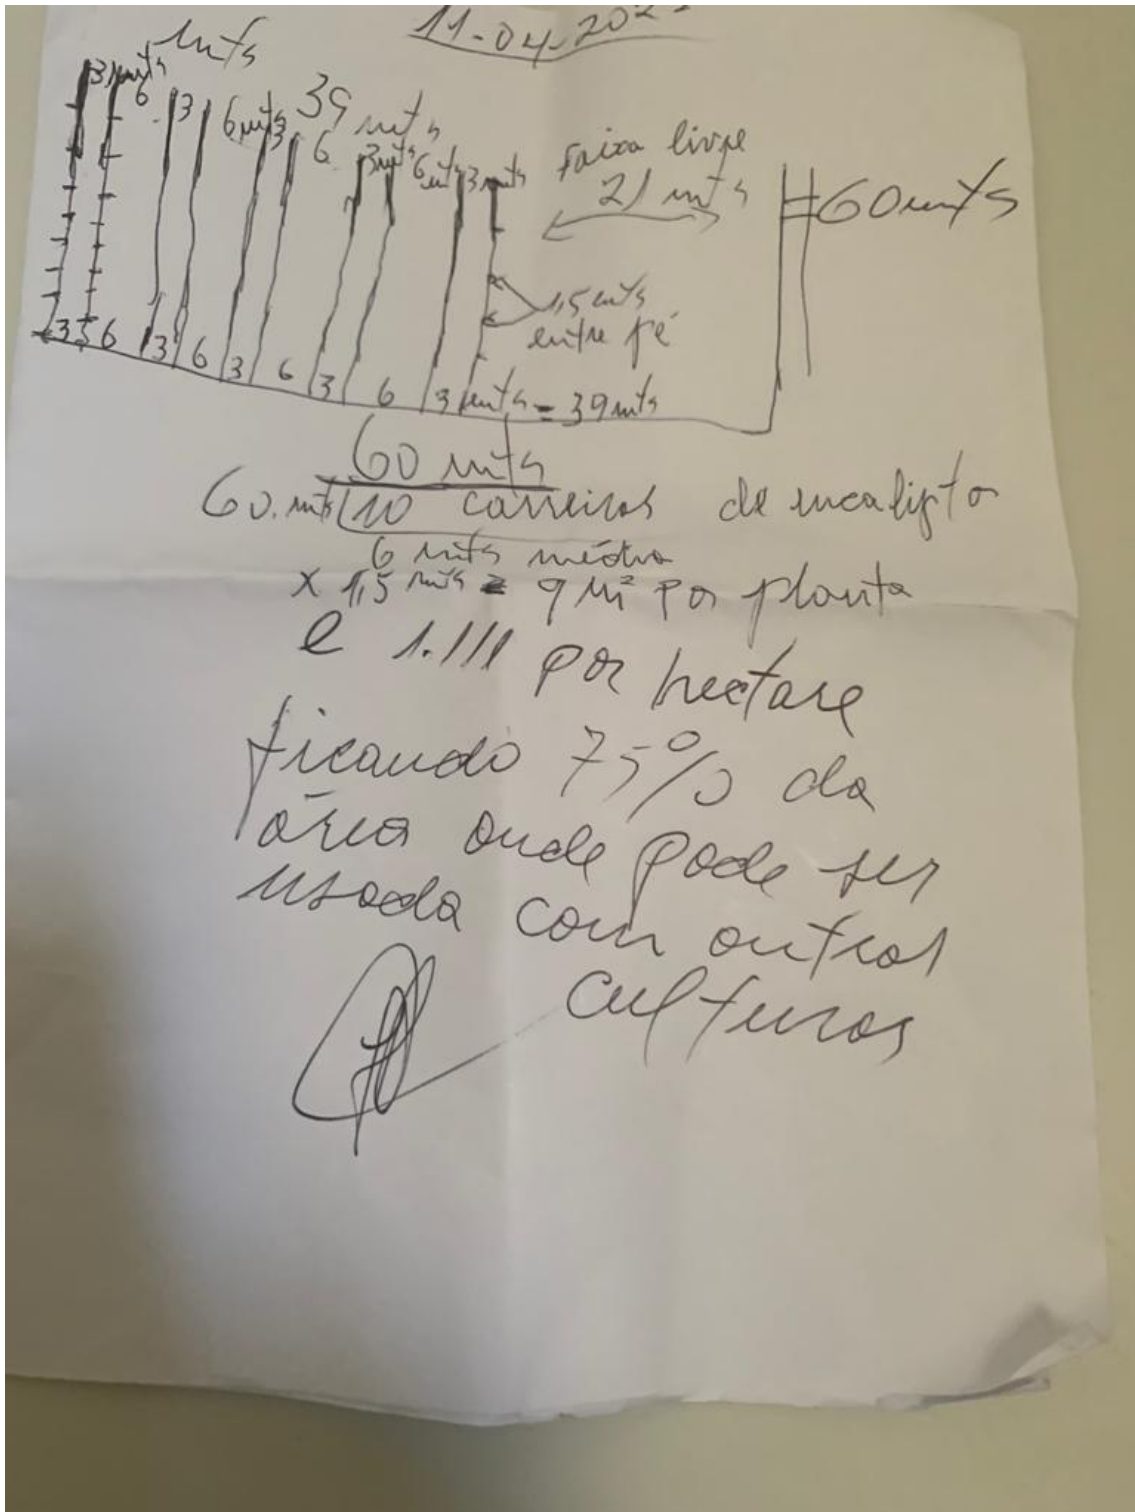 11-04-202
mts
3 mts 6 3 6 mts 3 6 3 mts 6 mts 3 mts
39 mts
faixa livre
21 mts
60 mts
1,5 mts
entre pé
3 6 3 6 3 6 3 6 3 mts = 39 mts
60 mts
60. mts 10 carreiras de eucalipto
6 mts média
x 1,5 mts = 9 M² por planta
e 1.111 por hectare
ficando 75% da
área onde pode ser
usada com outras
culturas